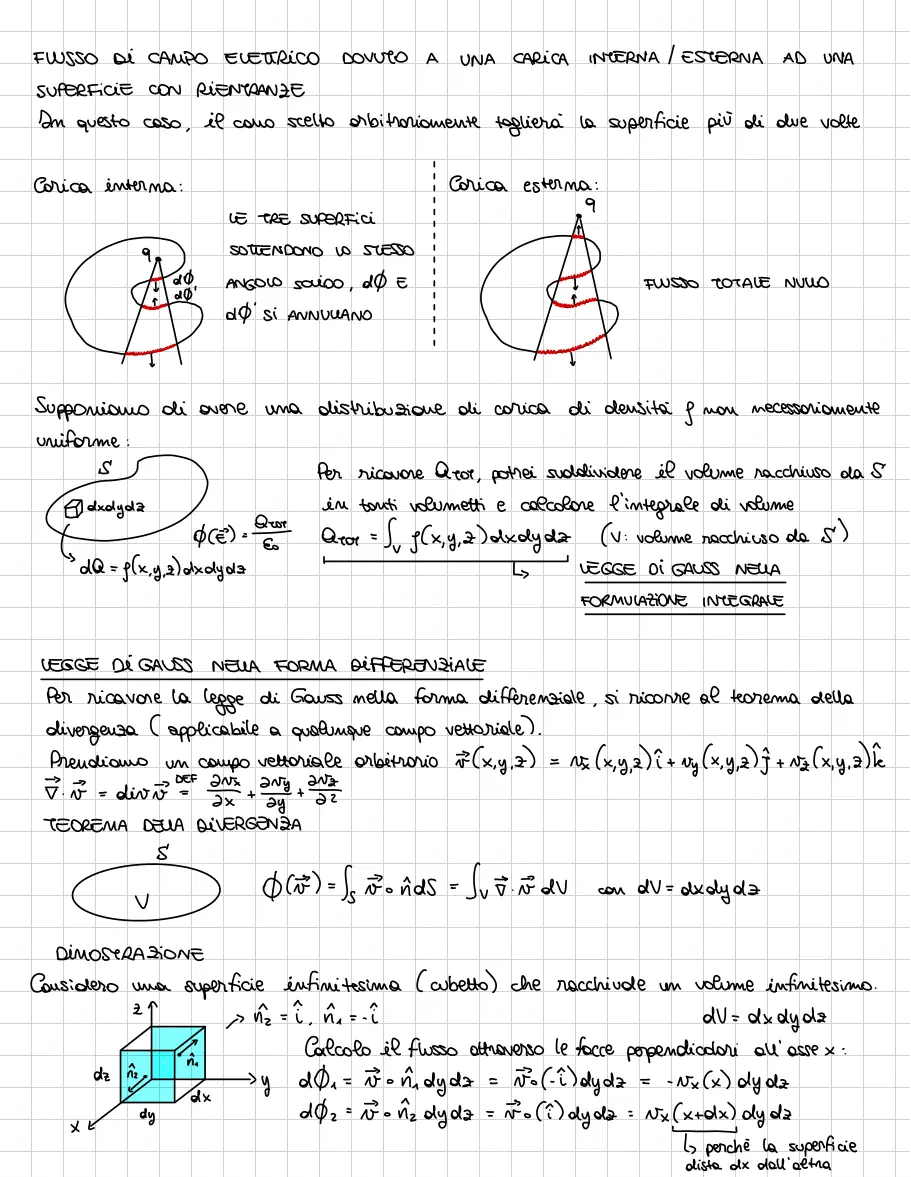 FLUSSO DI CAMPO ELETTRICO DOVUTO A UNA CARICA INTERNA / ESTERNA AD UNA
SUPERFICIE CON RIENTRANZE
In questo caso, il cono scelto arbitrariamente taglierà la superficie più di due volte
Carica interna:
q
dϕ
dϕ'
LE TRE SUPERFICI
SOTTENDONO LO STESSO
ANGOLO SOLIDO, dϕ E
dϕ' SI ANNULLANO
Carica esterna:
q
FLUSSO TOTALE NULLO
Supponiamo di avere una distribuzione di carica di densità ρ non necessariamente
uniforme:
S
dxdydz
dQ = ρ(x,y,z)dxdydz
ϕ(E⃗) = Qtot/ε₀
Per ricavare QTOT, potrei suddividere il volume racchiuso da S
in tanti volumetti e calcolare l'integrale di volume
QTOT = ∫_V ρ(x,y,z)dxdydz (V: volume racchiuso da S)
↳ LEGGE DI GAUSS NELLA
FORMULAZIONE INTEGRALE
LEGGE DI GAUSS NELLA FORMA DIFFERENZIALE
Per ricavare la legge di Gauss nella forma differenziale, si ricorre al teorema della
divergenza (applicabile a qualunque campo vettoriale).
Prendiamo un campo vettoriale arbitrario v⃗(x,y,z) = vx(x,y,z)î + vy(x,y,z)ĵ + vz(x,y,z)k̂
∇⃗ · v⃗ = div v⃗ =DEF ∂vx/∂x + ∂vy/∂y + ∂vz/∂z
TEOREMA DELLA DIVERGENZA
S
V
ϕ(v⃗) = ∫_S v⃗ ∘ n̂ dS = ∫_V ∇⃗ · v⃗ dV con dV = dxdydz
DIMOSTRAZIONE
Considero una superficie infinitesima (cubetto) che racchiude un volume infinitesimo.
z
→ n̂₂ = î, n̂₁ = -î
dV = dxdydz
n̂₁
n̂₂
dz
y
dx
dy
x
Calcolo il flusso attraverso le facce perpendicolari all'asse x:
dϕ₁ = v⃗ ∘ n̂₁ dydz = v⃗ ∘ (-î) dydz = -vx(x) dydz
dϕ₂ = v⃗ ∘ n̂₂ dydz = v⃗ ∘ (î) dydz = vx(x+dx) dydz
↳ perchè la superficie
dista dx dall'altra